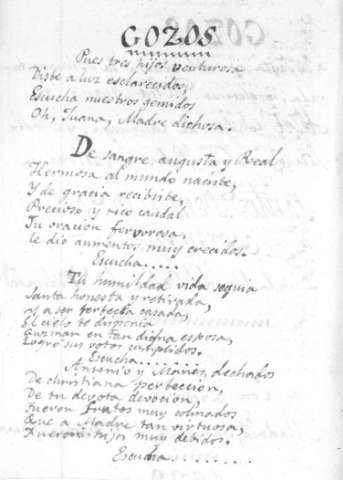 GOZOS
Pues tres hijos venturosa
Diste a luz esclarecidos,
Escucha nuestros gemidos
Oh, Juana, Madre dichosa.
De sangre augusta y Real
Hermosa al mundo naciste,
Y de gracia recibiste,
Precioso y rico caudal
Tu oracion fervorosa
le dio aumentos muy crecidos.
Escucha.....
Tu humildad vida seguia
Santa honesta y retirada,
a ser perfecta casada,
El cielo te disponia
Guzman en tan digna esposa,
Logró sus votos cumplidos.
Escucha........
Antonio y Manés, dechados
De christiana perfección,
De tu devota devoción,
Fueron frutos muy colmados
Que a Madre tan virtuosa,
Fueron hijos muy debidos.
Escucha........